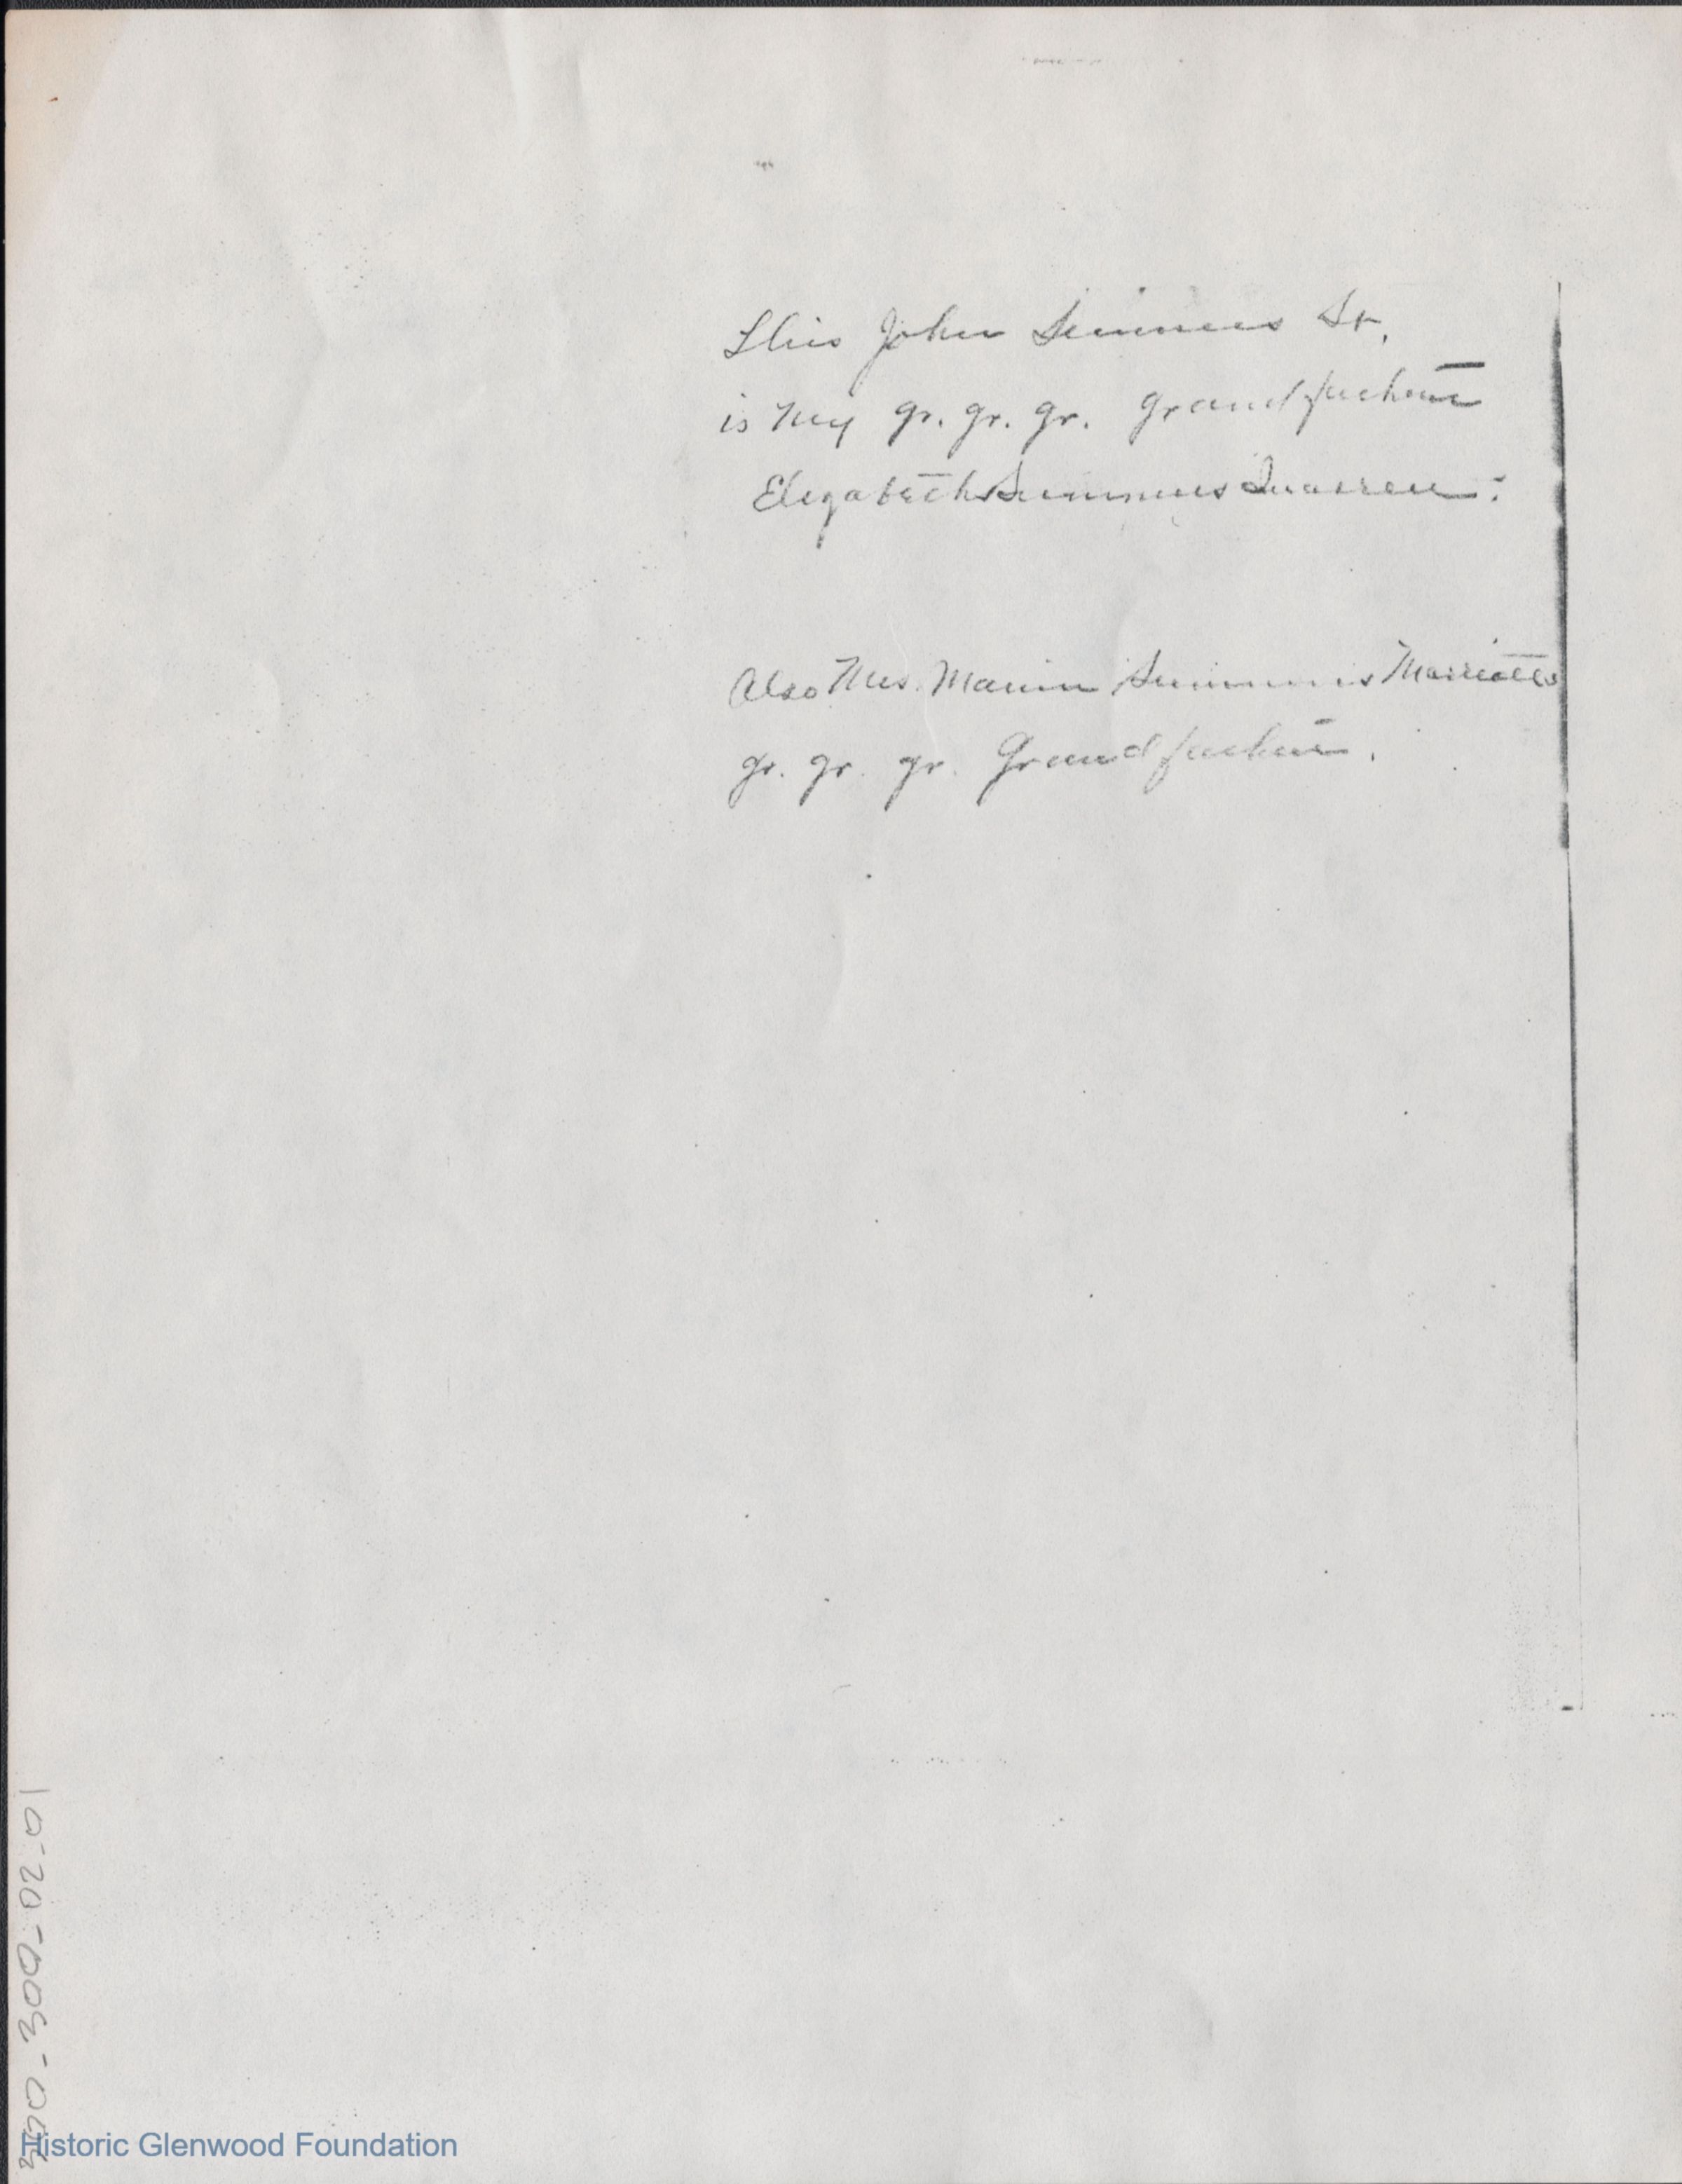 This John Simmons Sr.
is my gr. gr. gr. grandfather
Elizabeth Simmons
Also Mrs. Simmons Marriotts
gr. gr. gr. Grandfather.
Historic Glenwood Foundation